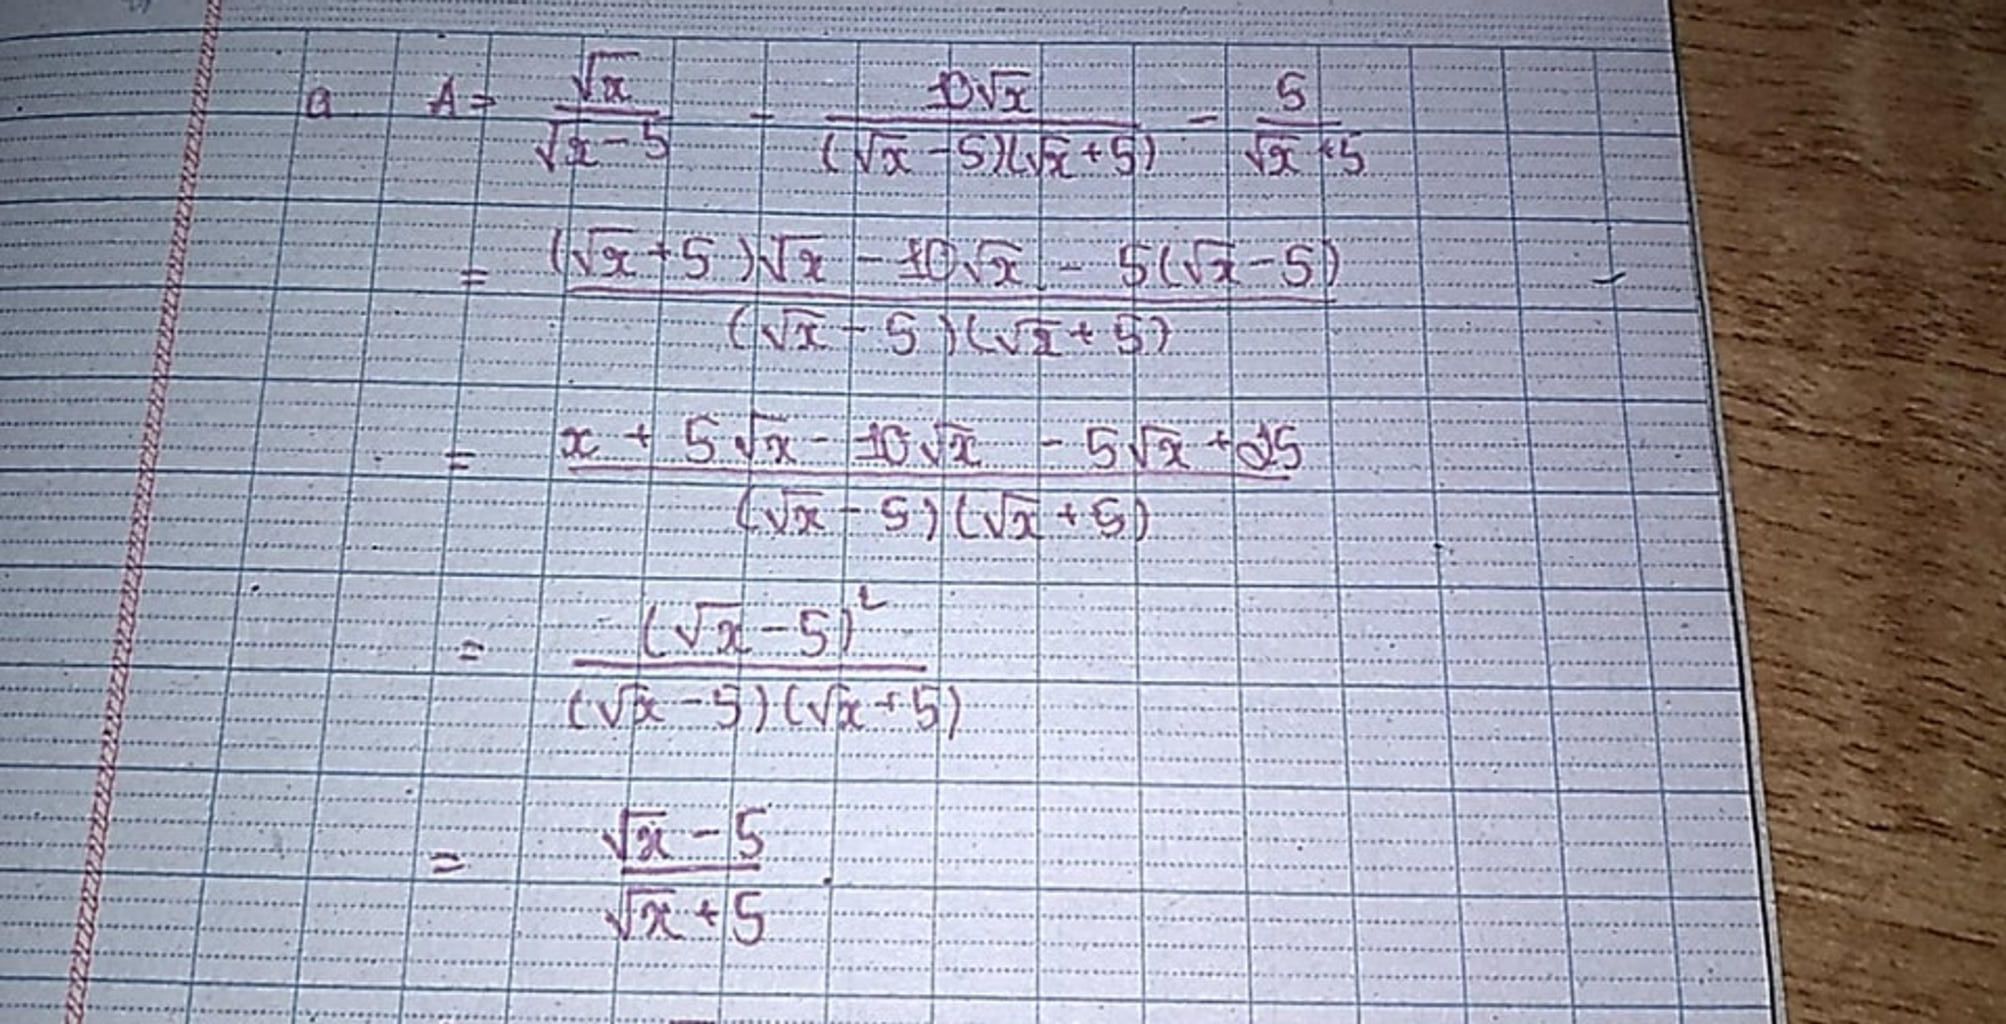 a. A = \frac{\sqrt{x}}{\sqrt{x}-5} - \frac{10\sqrt{x}}{(\sqrt{x}-5)(\sqrt{x}+5)} - \frac{5}{\sqrt{x}+5}
= \frac{(\sqrt{x}+5)\sqrt{x} - 10\sqrt{x} - 5(\sqrt{x}-5)}{(\sqrt{x}-5)(\sqrt{x}+5)}
= \frac{x + 5\sqrt{x} - 10\sqrt{x} - 5\sqrt{x} + 25}{(\sqrt{x}-5)(\sqrt{x}+5)}
= \frac{(\sqrt{x}-5)^2}{(\sqrt{x}-5)(\sqrt{x}+5)}
= \frac{\sqrt{x}-5}{\sqrt{x}+5}.